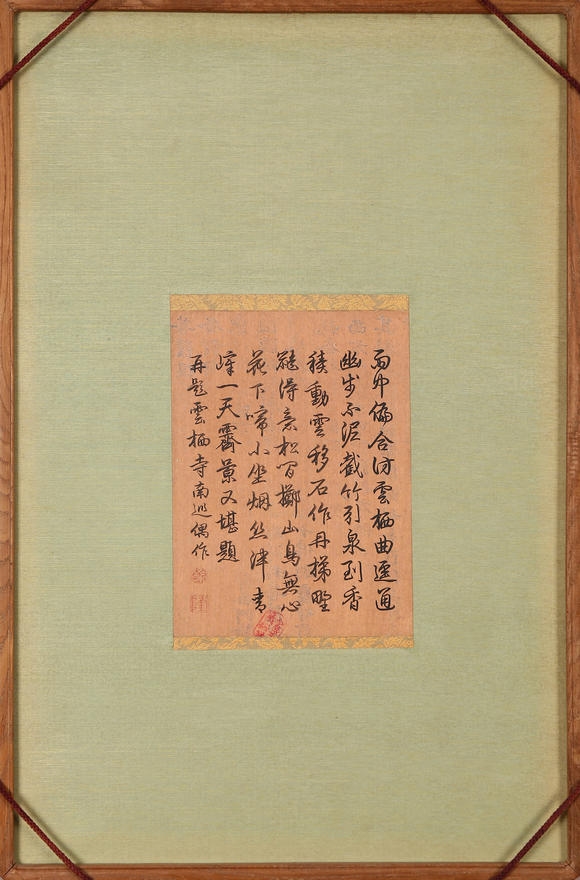 雨中偏合訪雲栖曲逕通
幽步不泥截竹引泉到香
積動雲移石作丹梯野
得意松間擲山鳥無心
花下啼小坐烟丝青
嶂一天霽景又堪題
再題雲栖寺南巡偶作